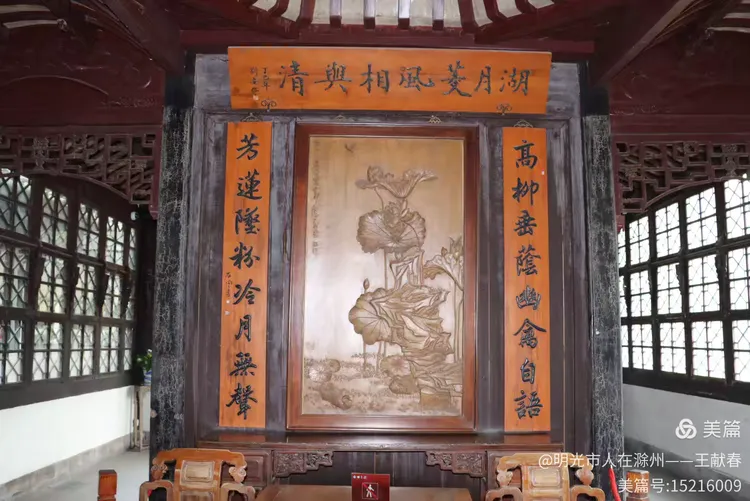 湖月菱風相與清
高柳垂蔭幽禽自語
芳蓮墜粉冷月無聲
美篇
@明光市人在滁州——王献春
美篇号:15216009